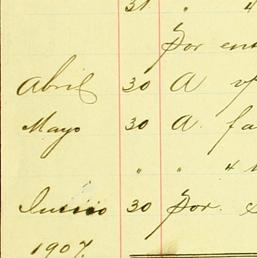 31 "
Por
Abril 30 A
Mayo 30 A. fa
" "
Junio 30 Por.
1907.